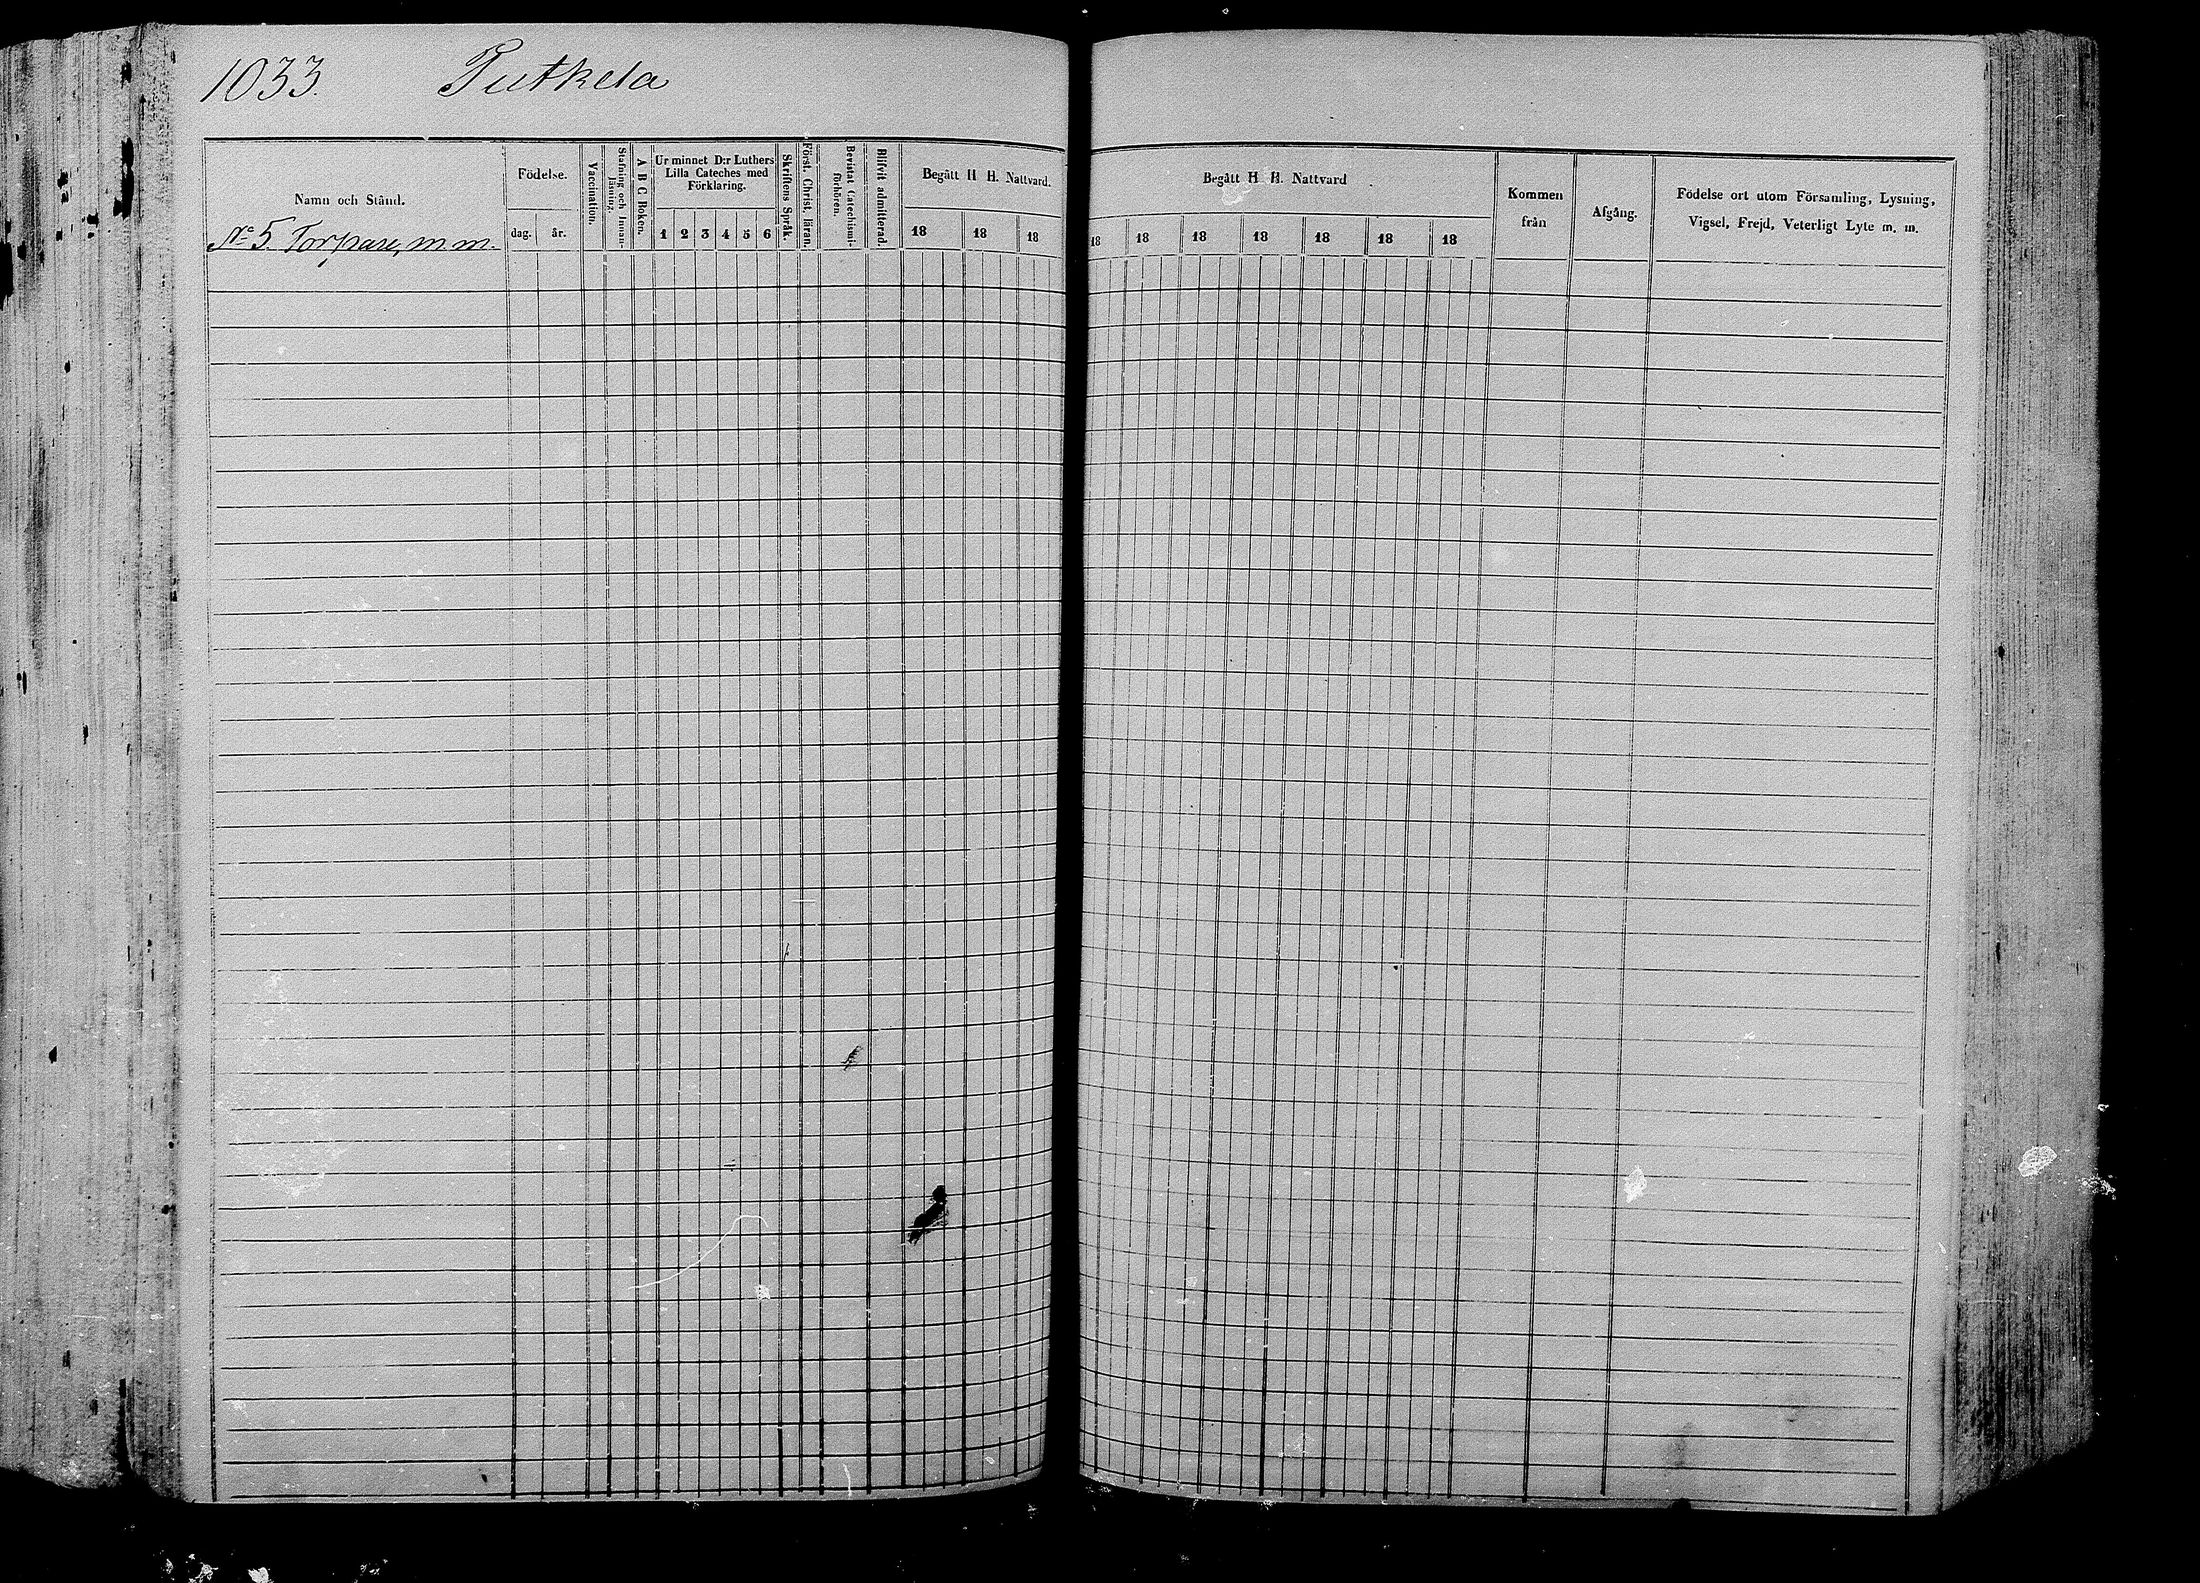 1033. Putkela
Namn och Stånd.
No 5. Torpare, m m.
Födelse.
dag. år.
Vaccination.
Stafning och Innan-
läsning.
A B C Boken.
Ur minnet D:r Luthers
Lilla Cateches med
Förklaring.
1 2 3 4 5 6
Skriftens Språk.
Först. Christ. läran.
Bevistat Catechismi-
förhören.
Blifvit admitterad.
Begått H H. Nattvard.
18 18 18
Begått H H. Nattvard
18 18 18 18 18 18 18
Kommen
från
Afgång.
Födelse ort utom Församling, Lysning,
Vigsel, Frejd, Veterligt Lyte m. m.